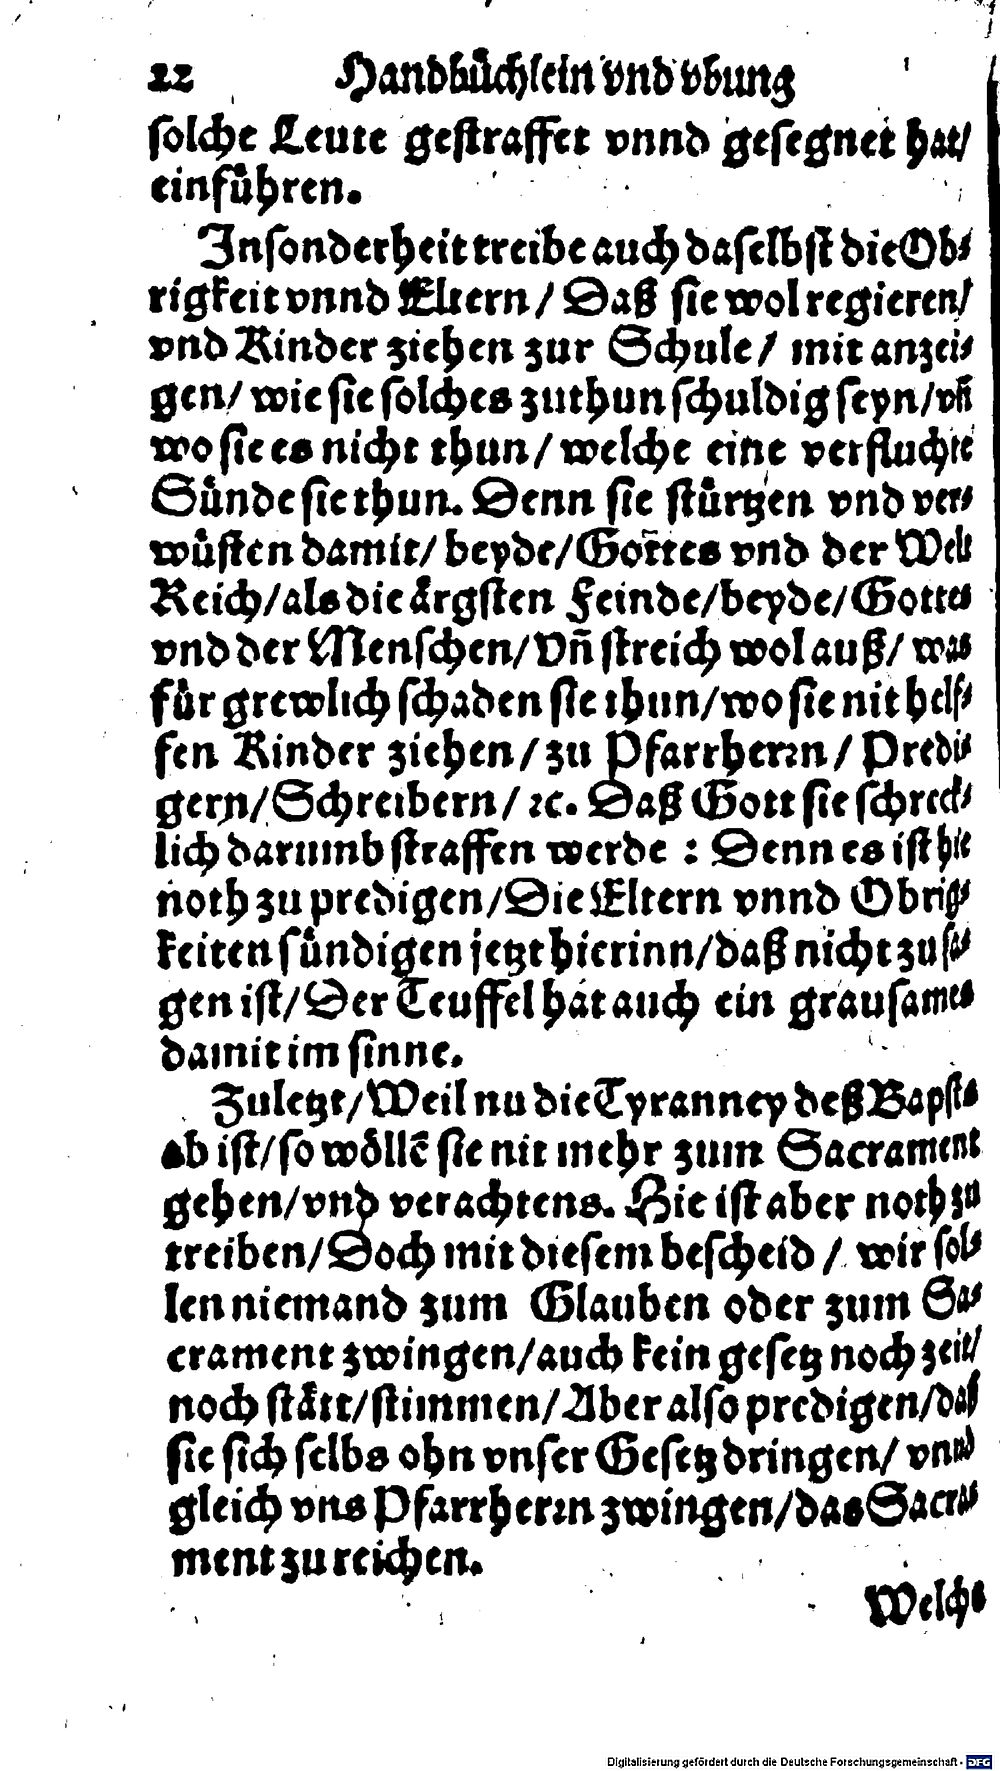 22 Handbüchlein vnd vbung
solche Leute gestraffet vnnd gesegnet hat/
einführen.
Insonderheit treibe auch daselbst die Ob-
rigkeit vnnd Eltern / Daß sie wol regieren/
vnd Kinder ziehen zur Schule / mit anzei-
gen/ wie sie solches zuthun schuldig seyn/vñ
wo sie es nicht thun / welche eine verfluchte
Sünde sie thun. Denn sie stürtzen vnd ver-
wüsten damit/ beyde/Gottes vnd der Welt
Reich/als die ärgsten Feinde/beyde/Gottes
vnd der Menschen/Vñ streich wol auß/ was
für grewlich schaden sie thun/wo sie nit helf-
fen Kinder ziehen / zu Pfarrherrn / Predi-
gern/Schreibern/ ꝛc. Daß Gott sie schreck-
lich darumb straffen werde : Denn es ist hie
noth zu predigen/Die Eltern vnnd Obrig-
keiten sündigen jetzt hierinn/daß nicht zu sa-
gen ist/Der Teuffel hat auch ein grausames
damit im sinne.
Zuletzt/Weil nu die Tyranney deß Bapsts
ab ist/so wöllē sie nit mehr zum Sacrament
gehen/vnd verachtens. Hie ist aber noth zu
treiben/Doch mit diesem bescheid / wir sol-
len niemand zum Glauben oder zum Sa-
crament zwingen/auch kein gesetz noch zeit/
noch stätt/stimmen/Aber also predigen/daß
sie sich selbs ohn vnser Gesetz dringen/ vnnd
gleich vns Pfarrherrn zwingen/das Sacra-
ment zu reichen.
Welchs
Digitalisierung gefördert durch die Deutsche Forschungsgemeinschaft - DFG